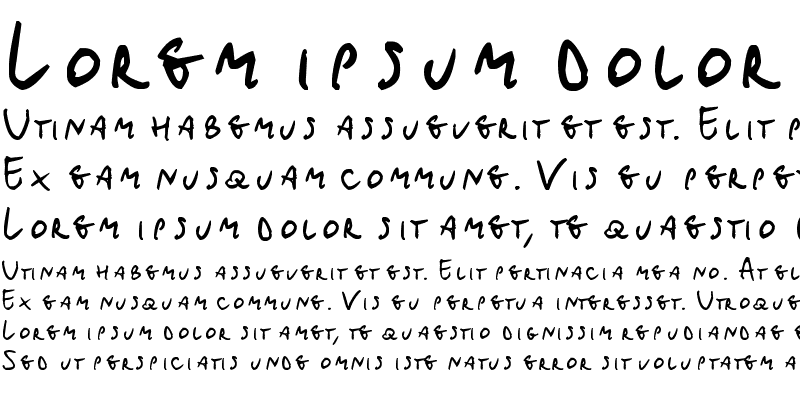 Lorem ipsum dolor
Utinam habemus assueverit et est. Elit
Ex eam nusquam commune. Vis eu
Lorem ipsum dolor sit amet, te quaestio
Utinam habemus assueverit et est. Elit pertinacia mea no. At
Ex eam nusquam commune. Vis eu perpetua interesset. Utroque
Lorem ipsum dolor sit amet, te quaestio dignissim repudiandae
Sed ut perspiciatis unde omnis iste natus error sit voluptatem a